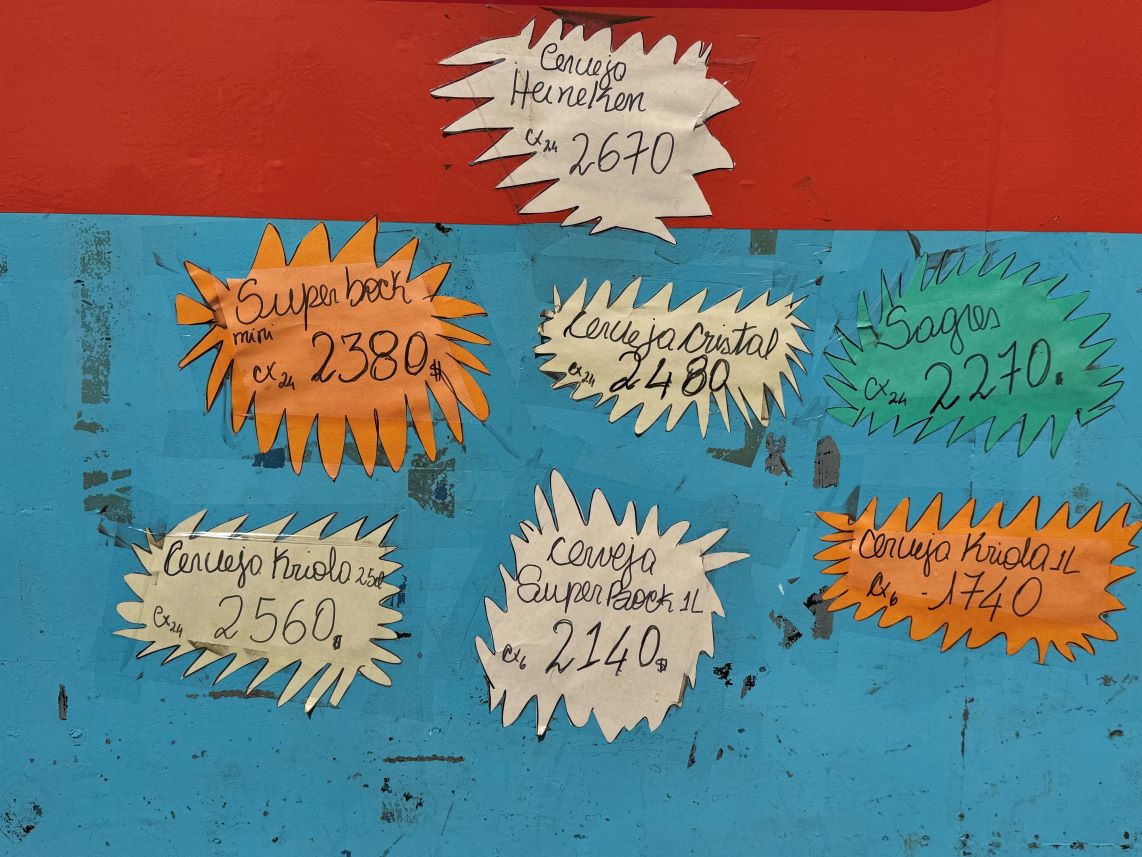 Cerveja
Heineken
cx 24 2670
Super bock
mini
cx 24 2380$
Cerveja Cristal
cx 24 2480
Sagres
cx 24 2270$
Cerveja Kriola 25cl
cx 24 2560$
Cerveja
Super Bock 1L
cx 6 2140$
Cerveja Kriola 1L
cx 6 - 1740